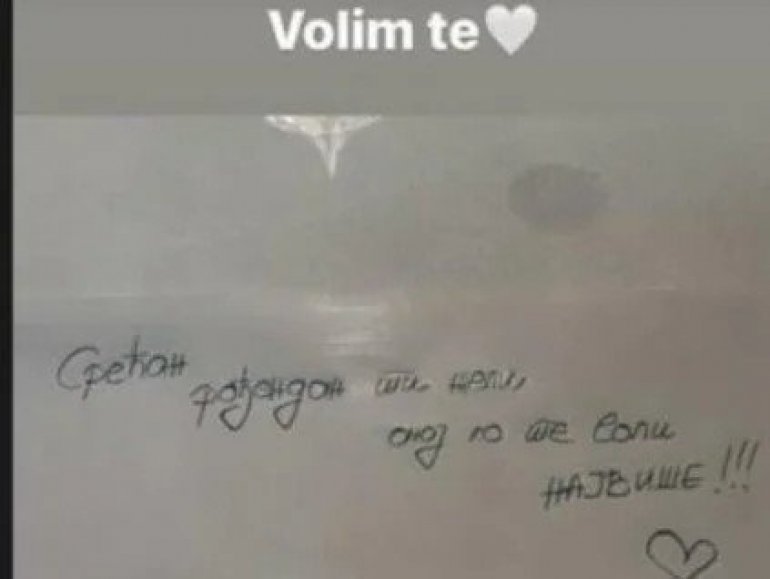 Volim te🤍
Срећан
рођендан ти жели,
онај ко те воли
НАЈВИШЕ!!!